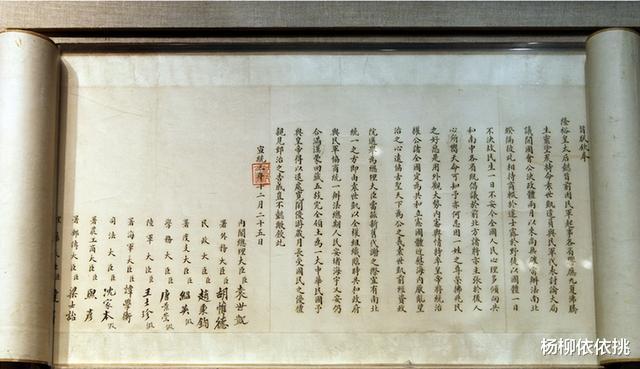 旨朕欽奉
隆裕皇太后懿旨前因民軍起事各省響應九夏沸騰
生靈塗炭特命袁世凱遣員與民軍代表討論大局
議開國會公決政體兩月以來尚無確當辦法南北
暌隔彼此相持商輟於途士露於野徒以國體一日
不決故民生一日不安今全國人民心理多傾向共
和南中各省既倡議於前北方諸將亦主張於後人
心所嚮天命可知予亦何忍因一姓之尊榮拂兆民
之好惡是用外觀大勢內審輿情特率皇帝將統治
權公諸全國定為共和立憲國體近慰海內厭亂望
治之心遠協古聖天下為公之義袁世凱前經資政
院選舉為總理大臣當茲新舊代謝之際宜有南北
統一之方即由袁世凱以全權組織臨時共和政府
與民軍協商統一辦法總期人民安堵海宇乂安仍
合滿漢蒙回藏五族完全領土為一大中華民國予
與皇帝得以退處寬閒優游歲月長受國民之優禮
親見郅治之告成豈不懿歟欽此
宣統三年十二月二十五日
內閣總理大臣袁世凱
署外務大臣胡惟德
民政大臣趙秉鈞
署度支大臣紹英假
學務大臣唐景崇假
陸軍大臣王士珍假
署海軍大臣譚學衡
司法大臣沈家本假
署農工商大臣熙彥
署郵傳大臣梁士詒
杨柳依依挑